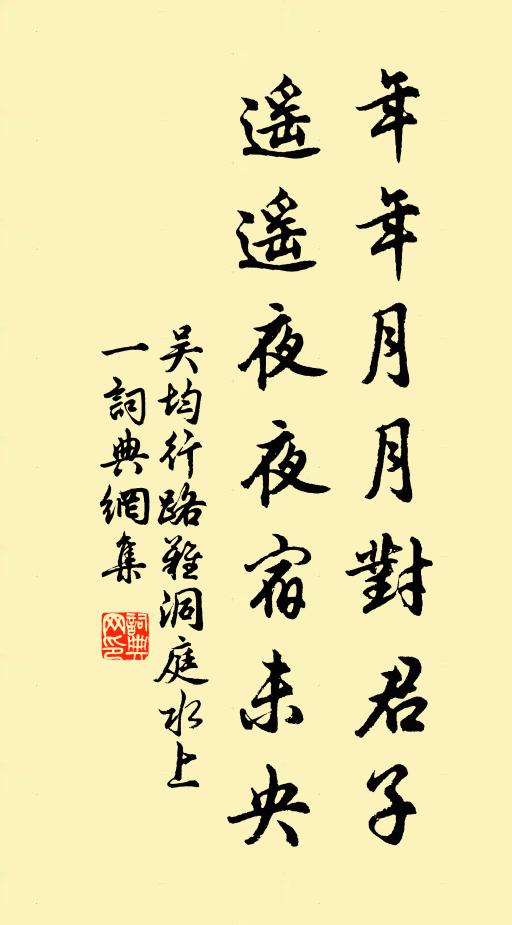 年年月月對君子
遙遙夜夜宿未央
吴均行路難洞庭水上
一詞典網集
詞典
网印